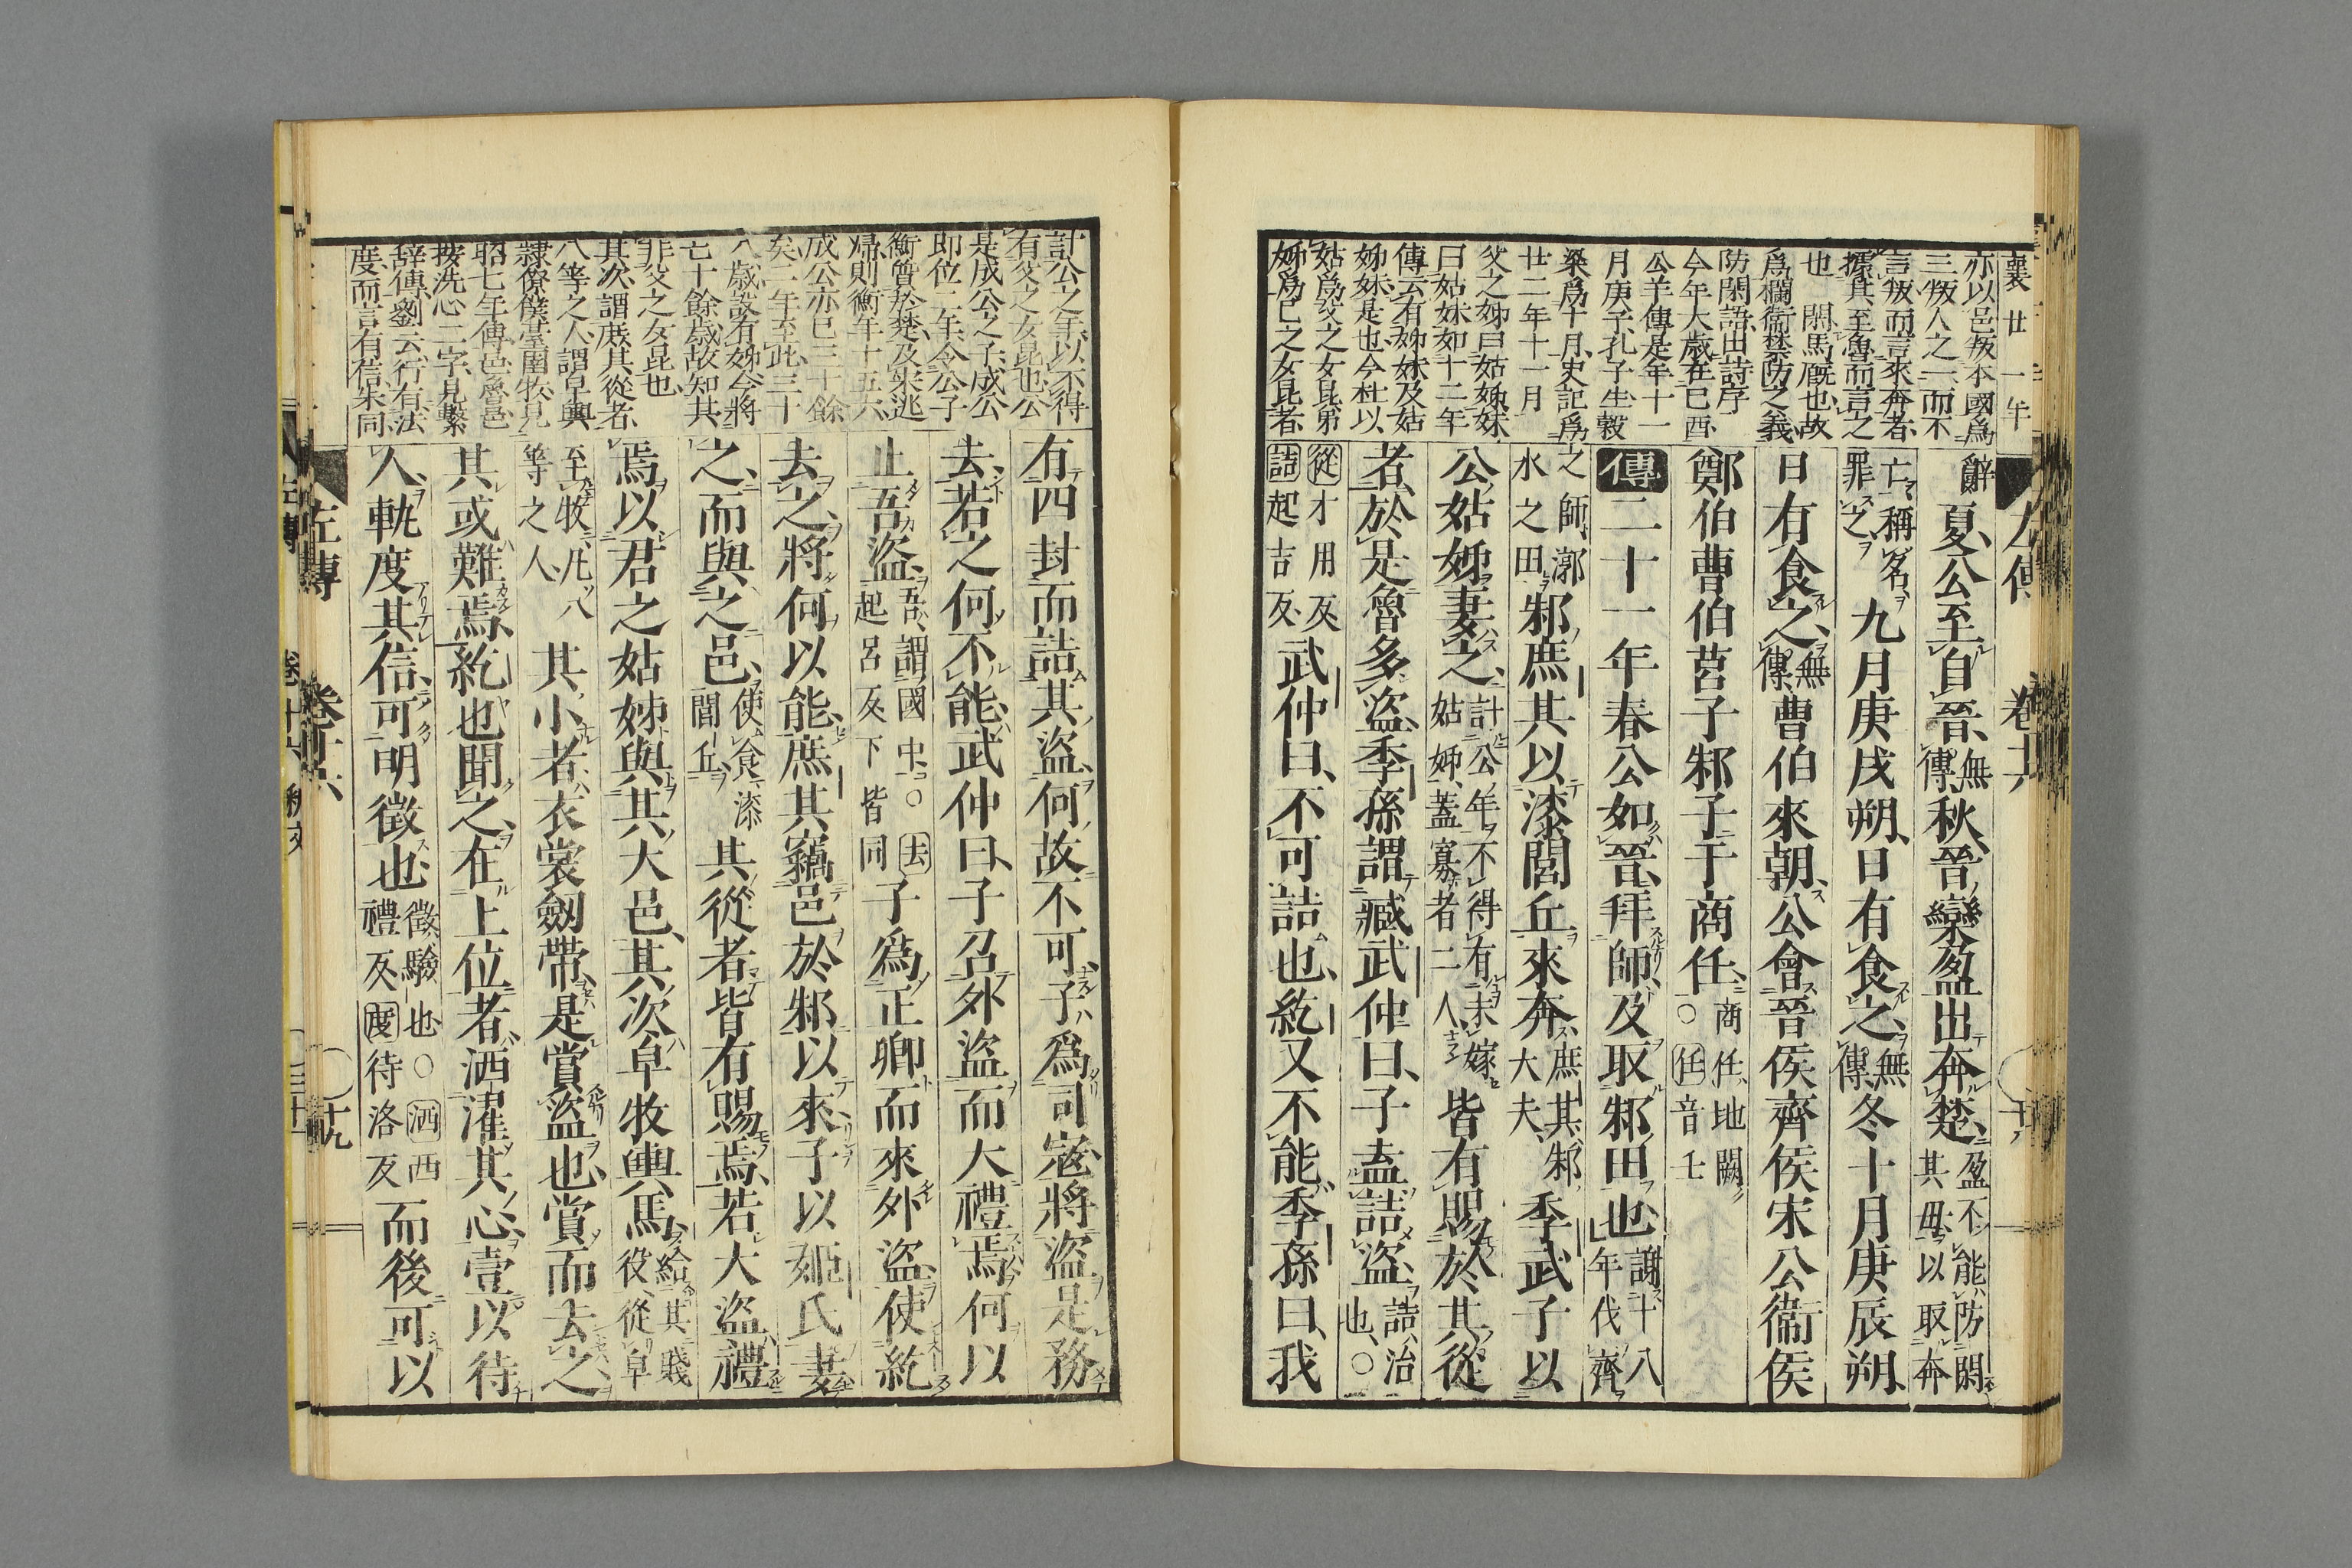 襄廿一年
亦以邑叛本國爲
三叛人之一而不
言叛而言來奔者
據其至魯而言之
也 閑馬廐也故
爲欄衞禁防之義
防閑語出詩序
今年大歳在己酉
公羊傳是年十一
月庚子孔子生穀
梁爲十月史記爲
廿二年十一月
父之姉曰姑姊妹
曰姑妹如十二年
傳云有姊妹及姑
姊妹是也今杜以
姑爲父之女昆弟
姊爲己之女昆者
辭夏公至自晉無傳秋晉欒盈出奔楚盈不能防閑其母以取奔
亡稱名罪之九月庚戌朔日有食之無傳冬十月庚辰朔
日有食之無傳曹伯來朝公會晉侯齊侯宋公衞侯
鄭伯曹伯莒子邾子于商任商任地闕○任音壬
傳二十一年春公如晉拜師及取邾田也謝十八年伐齊
之師漷水之田邾庶其以漆閭丘來奔庶其邾大夫季武子以
公姑姊妻之計公年不得有未嫁姑姊蓋寡者二人皆有賜於其從
者於是魯多盜季孫謂臧武仲曰子盍詰盜詰治也○
從才用反詰起吉反武仲曰不可詰也紇又不能季孫曰我
左傳 卷十六 十八
計公之年以不得
有父之女昆也公
是成公之子成公
即位二年令公子
衡質於楚及宋逃
歸則衡年十五六
成公亦已三十餘
矣二年至此三十
八歳設有姊今將
七十餘歳故知其
非父之女昆也
其次謂庶其從者
八等之人謂皁輿
隷僚僕臺圉牧見
昭七年傳邑魯邑
按洗心二字見繫
辭傳劉云行有法
度而言有信米同
有四封而詰其盜何故不可子爲司寇將盜是務
去若之何不能武仲曰子召外盜而大禮焉何以
止吾盜吾謂國中○去起呂反下皆同子爲正卿而來外盜使紇
去之將何以能庶其竊邑於邾以來子以姬氏妻
之而與之邑使食漆閭丘其從者皆有賜焉若大盜禮
焉以君之姑姊與其大邑其次皁牧輿馬給其賤役從皁
至牧凡八等之人其小者衣裳劒帶是賞盜也賞而去之
其或難焉紇也聞之在上位者洒濯其心壹以待
人軌度其信可明徵也徵驗也○洒西禮反度待洛反而後可以
左傳 卷十六 十九